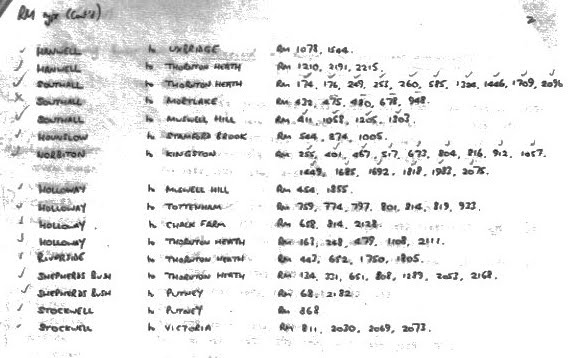 RM xfr (Cont'd) 2
✓ HANWELL to UXBRIDGE RM 1078, 1544.
✓ HANWELL to THORNTON HEATH RM 1210, 2191, 2215.
✓ SOUTHALL to THORNTON HEATH RM 174, 176, 249, 253, 260, 585, 1446, 1709, 2096
✗ SOUTHALL to MORTLAKE RM 432, 475, 480, 678, 948.
✓ SOUTHALL to MUSWELL HILL RM 411, 1058, 1205, 1803.
✓ HOUNSLOW to STAMFORD BROOK RM 544, 874, 1005.
✓ NORBITON to KINGSTON RM 255, 401, 467, 517, 673, 804, 816, 912, 1057.
1449, 1685, 1692, 1818, 1983, 2075.
✓ HOLLOWAY to MUSWELL HILL RM 454, 1855.
✓ HOLLOWAY to TOTTENHAM RM 759, 774, 797, 801, 814, 819, 923.
✓ HOLLOWAY to CHALK FARM RM 658, 814, 2128.
✓ HOLLOWAY to THORNTON HEATH RM 163, 268, 479, 1108, 2111.
✓ RIVERSIDE to THORNTON HEATH RM 447, 652, 1750, 1805.
✓ SHEPHERDS BUSH to THORNTON HEATH RM 134, 331, 651, 808, 1289, 2053, 2168.
✓ SHEPHERDS BUSH to PUTNEY RM 68, 2182.
✓ STOCKWELL to PUTNEY RM 868
✓ STOCKWELL to VICTORIA RM 811, 2030, 2069, 2073.